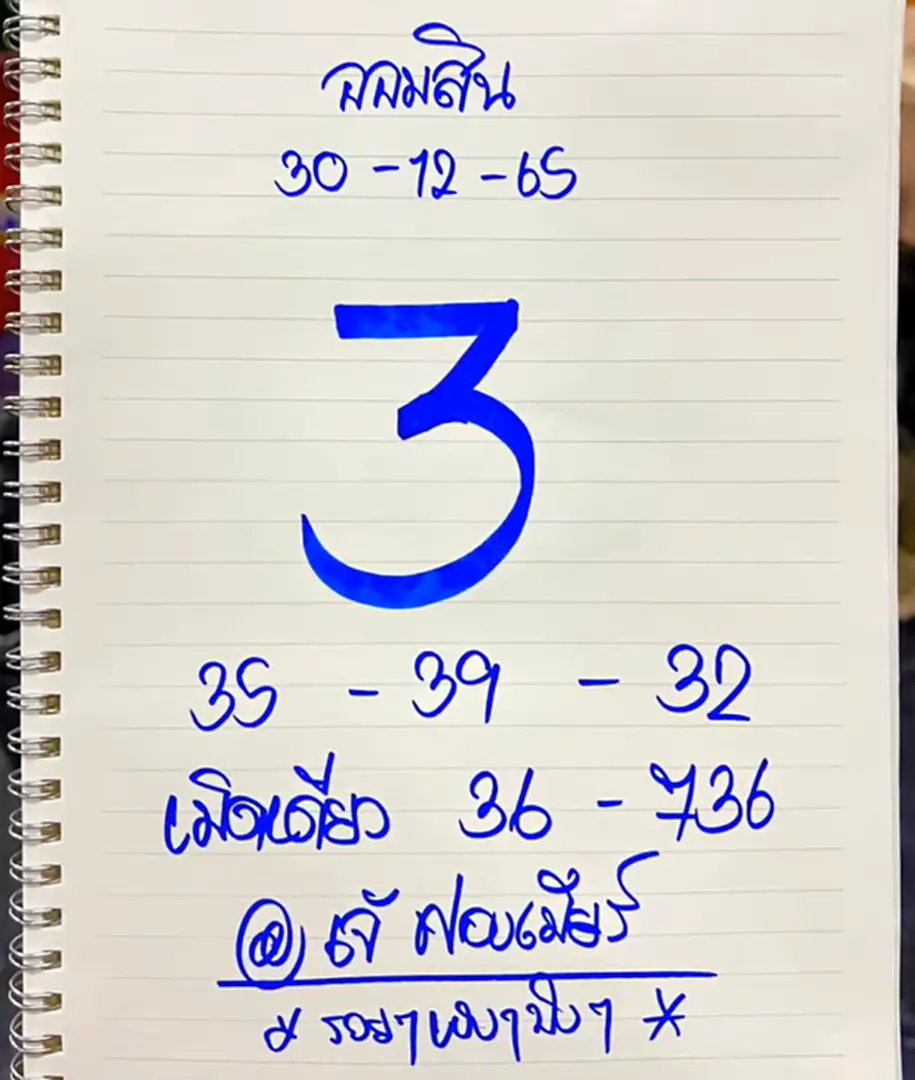 ออมสิน
30 - 12 - 65
3
35 - 39 - 32
เม็ดเดียว 36 - 736
เจ๊ ฟองเบียร์
* รวยๆ เฮงๆ ปังๆ *